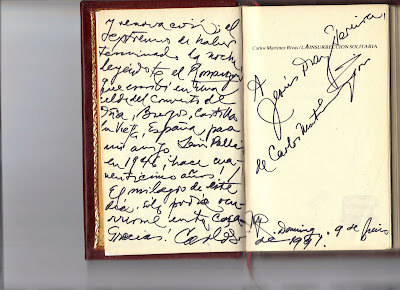 y renovación; al
extremo de haber
terminado la noche
leyéndote el Romance
que escribí en una
celda del Convento de
Oña, Burgos, Castilla
la Vieja, España, para
mi amigo
en 1946, hace cua-
renticinco años!
El milagro de este
día sólo podía ocu-
rrirme en tu casa
Gracias! Carlos
Carlos Martínez Rivas / LA INSURRECCION SOLITARIA
A
Jesús
de Carlos
Domingo 9 de Junio
de 1991.